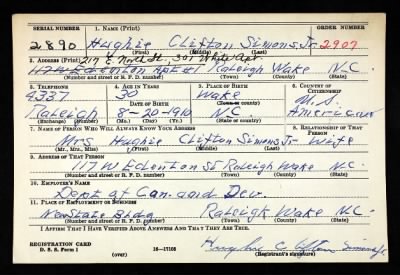 SERIAL NUMBER 1. NAME (Print) ORDER NUMBER
2890 Hughie Clifton Simons Jr 2907
(First) (Middle) (Last)
2. ADDRESS (Print) 217 E. North St, 301 White Apt.
117 W Edenton Apt #1 Raleigh Wake N.C.
(Number and street or R. F. D. number) (Town) (County) (State)
3. TELEPHONE 4. AGE IN YEARS 5. PLACE OF BIRTH 6. COUNTRY OF CITIZENSHIP
4337 30 Wake U.S.
DATE OF BIRTH (Town or county)
Raleigh 8-20-1910 N.C. American
(Exchange) (Number) (Mo.) (Day) (Yr.) (State or country)
7. NAME OF PERSON WHO WILL ALWAYS KNOW YOUR ADDRESS 8. RELATIONSHIP OF THAT PERSON
Mrs Hughie Clifton Simons Jr Wife
(Mr., Mrs., Miss) (First) (Middle) (Last)
9. ADDRESS OF THAT PERSON
117 W Edenton St Raleigh Wake N.C.
(Number and street or R. F. D. number) (Town) (County) (State)
10. EMPLOYER'S NAME
Dept of Con. and Dev.
11. PLACE OF EMPLOYMENT OR BUSINESS
New State Bldg Raleigh Wake N.C.
(Number and street or R. F. D. number) (Town) (County) (State)
I AFFIRM THAT I HAVE VERIFIED ABOVE ANSWERS AND THAT THEY ARE TRUE.
REGISTRATION CARD
D. S. S. Form 1 16-17105 Hughie Clifton Simons Jr.
(over) (Registrant's signature)